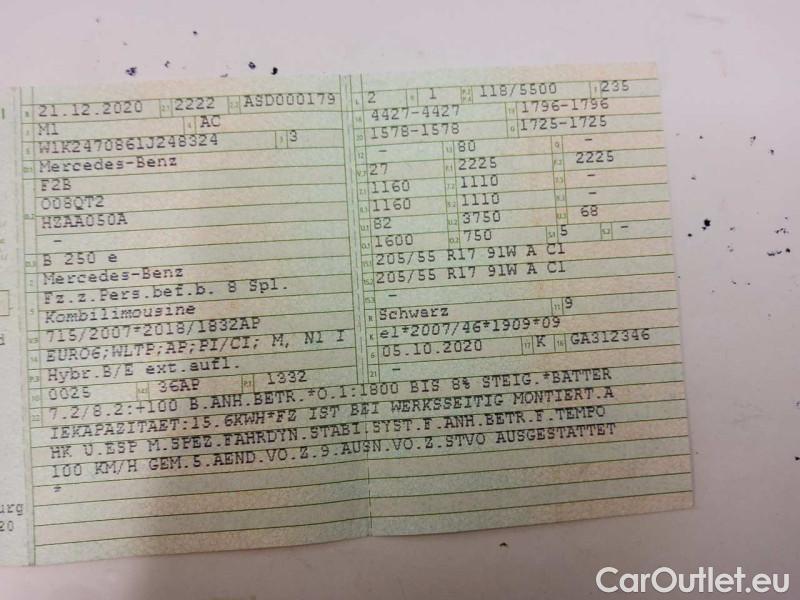 B 21.12.2020 2.1 2222 2.2 ASD000179
J M1 4 AC
E W1K2470861J248324 3 3
D.1 Mercedes-Benz
F2B
D.2 O08QT2
HZAA050A
-
D.3 B 250 e
2 Mercedes-Benz
5 Fz.z.Pers.bef.b. 8 Spl.
Kombilimousine
V.9 715/2007*2018/1832AP
14 EURO6;WLTP;AP;PI/CI; M, N1 I
P.3 Hybr.B/E ext.aufl.
10 0025 14.1 36AP P.1 1332
L 2 9 1 P.2 P.4 118/5500 T 235
18 4427-4427 19 1796-1796
20 1578-1578 G 1725-1725
12 - 13 80 Q -
V.7 27 F.1 2225 F.2 2225
7.1 1160 7.2 1110 7.3 -
8.1 1160 8.2 1110 8.3 -
U.1 82 U.2 3750 U.3 68
O.1 1600 O.2 750 S.1 5 S.2 -
15.1 205/55 R17 91W A C1
15.2 205/55 R17 91W A C1
15.3 -
R Schwarz 11 9
K e1*2007/46*1909*09
6 05.10.2020 17 K 16 GA312346
21 -
22 7.2/8.2:+100 B.ANH.BETR.*O.1:1800 BIS 8% STEIG.*BATTER
IEKAPAZITAET:15.6KWH*FZ IST BEI WERKSSEITIG MONTIERT.A
HK U.ESP M.SPEZ.FAHRDYN.STABI.SYST.F.ANH.BETR.F.TEMPO
100 KM/H GEM.5.AEND.VO.Z.9.AUSN.VO.Z.STVO AUSGESTATTET
*
urg
20
CarOutlet.eu